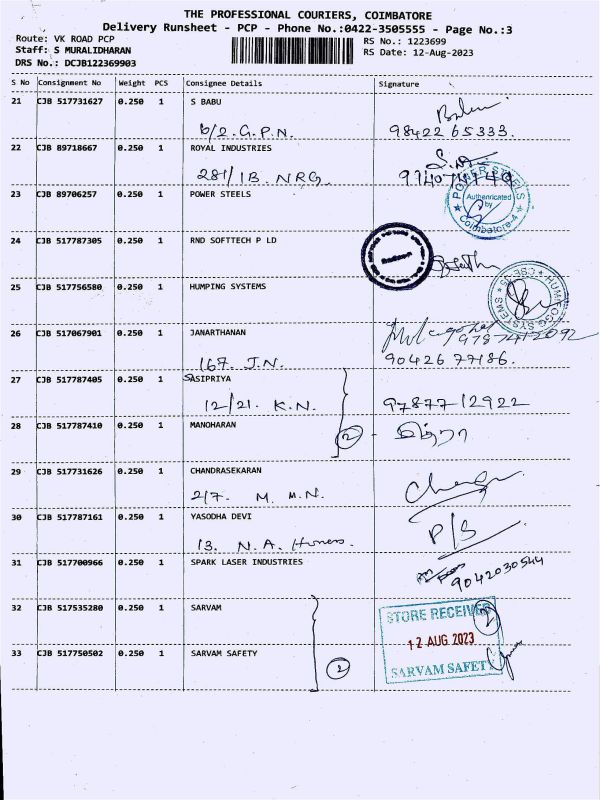 THE PROFESSIONAL COURIERS, COIMBATORE
Delivery Runsheet - PCP - Phone No.:0422-3505555 - Page No.:3
Route: VK ROAD PCP RS No.: 1223699
Staff: S MURALIDHARAN RS Date: 12-Aug-2023
DRS No.: DCJB122369903
S No Consignment No Weight PCS Consignee Details Signature
21 CJB 517731627 0.250 1 S BABU
6/2. G.P.N. 98422 65333.
22 CJB 89718667 0.250 1 ROYAL INDUSTRIES
281/1B. NRG
23 CJB 89706257 0.250 1 POWER STEELS
POWER STEELS
Authenticated
by
Coimbatore-4
24 CJB 517787305 0.250 1 RND SOFTTECH P LD
25 CJB 517756580 0.250 1 HUMPING SYSTEMS
26 CJB 517067901 0.250 1 JANARTHANAN
9787412092
167. J.N. 90426 77186.
27 CJB 517787405 0.250 1 SASIPRIYA
12/21. K.N. 97877 12922
28 CJB 517787410 0.250 1 MANOHARAN
2
29 CJB 517731626 0.250 1 CHANDRASEKARAN
2/7. M. M.N.
30 CJB 517787161 0.250 1 YASODHA DEVI
P/S
13. N.A. Homes.
31 CJB 517700966 0.250 1 SPARK LASER INDUSTRIES
9042030544
32 CJB 517535280 0.250 1 SARVAM
STORE RECEIVED
2
12 AUG 2023
33 CJB 517750502 0.250 1 SARVAM SAFETY
2
SARVAM SAFETY